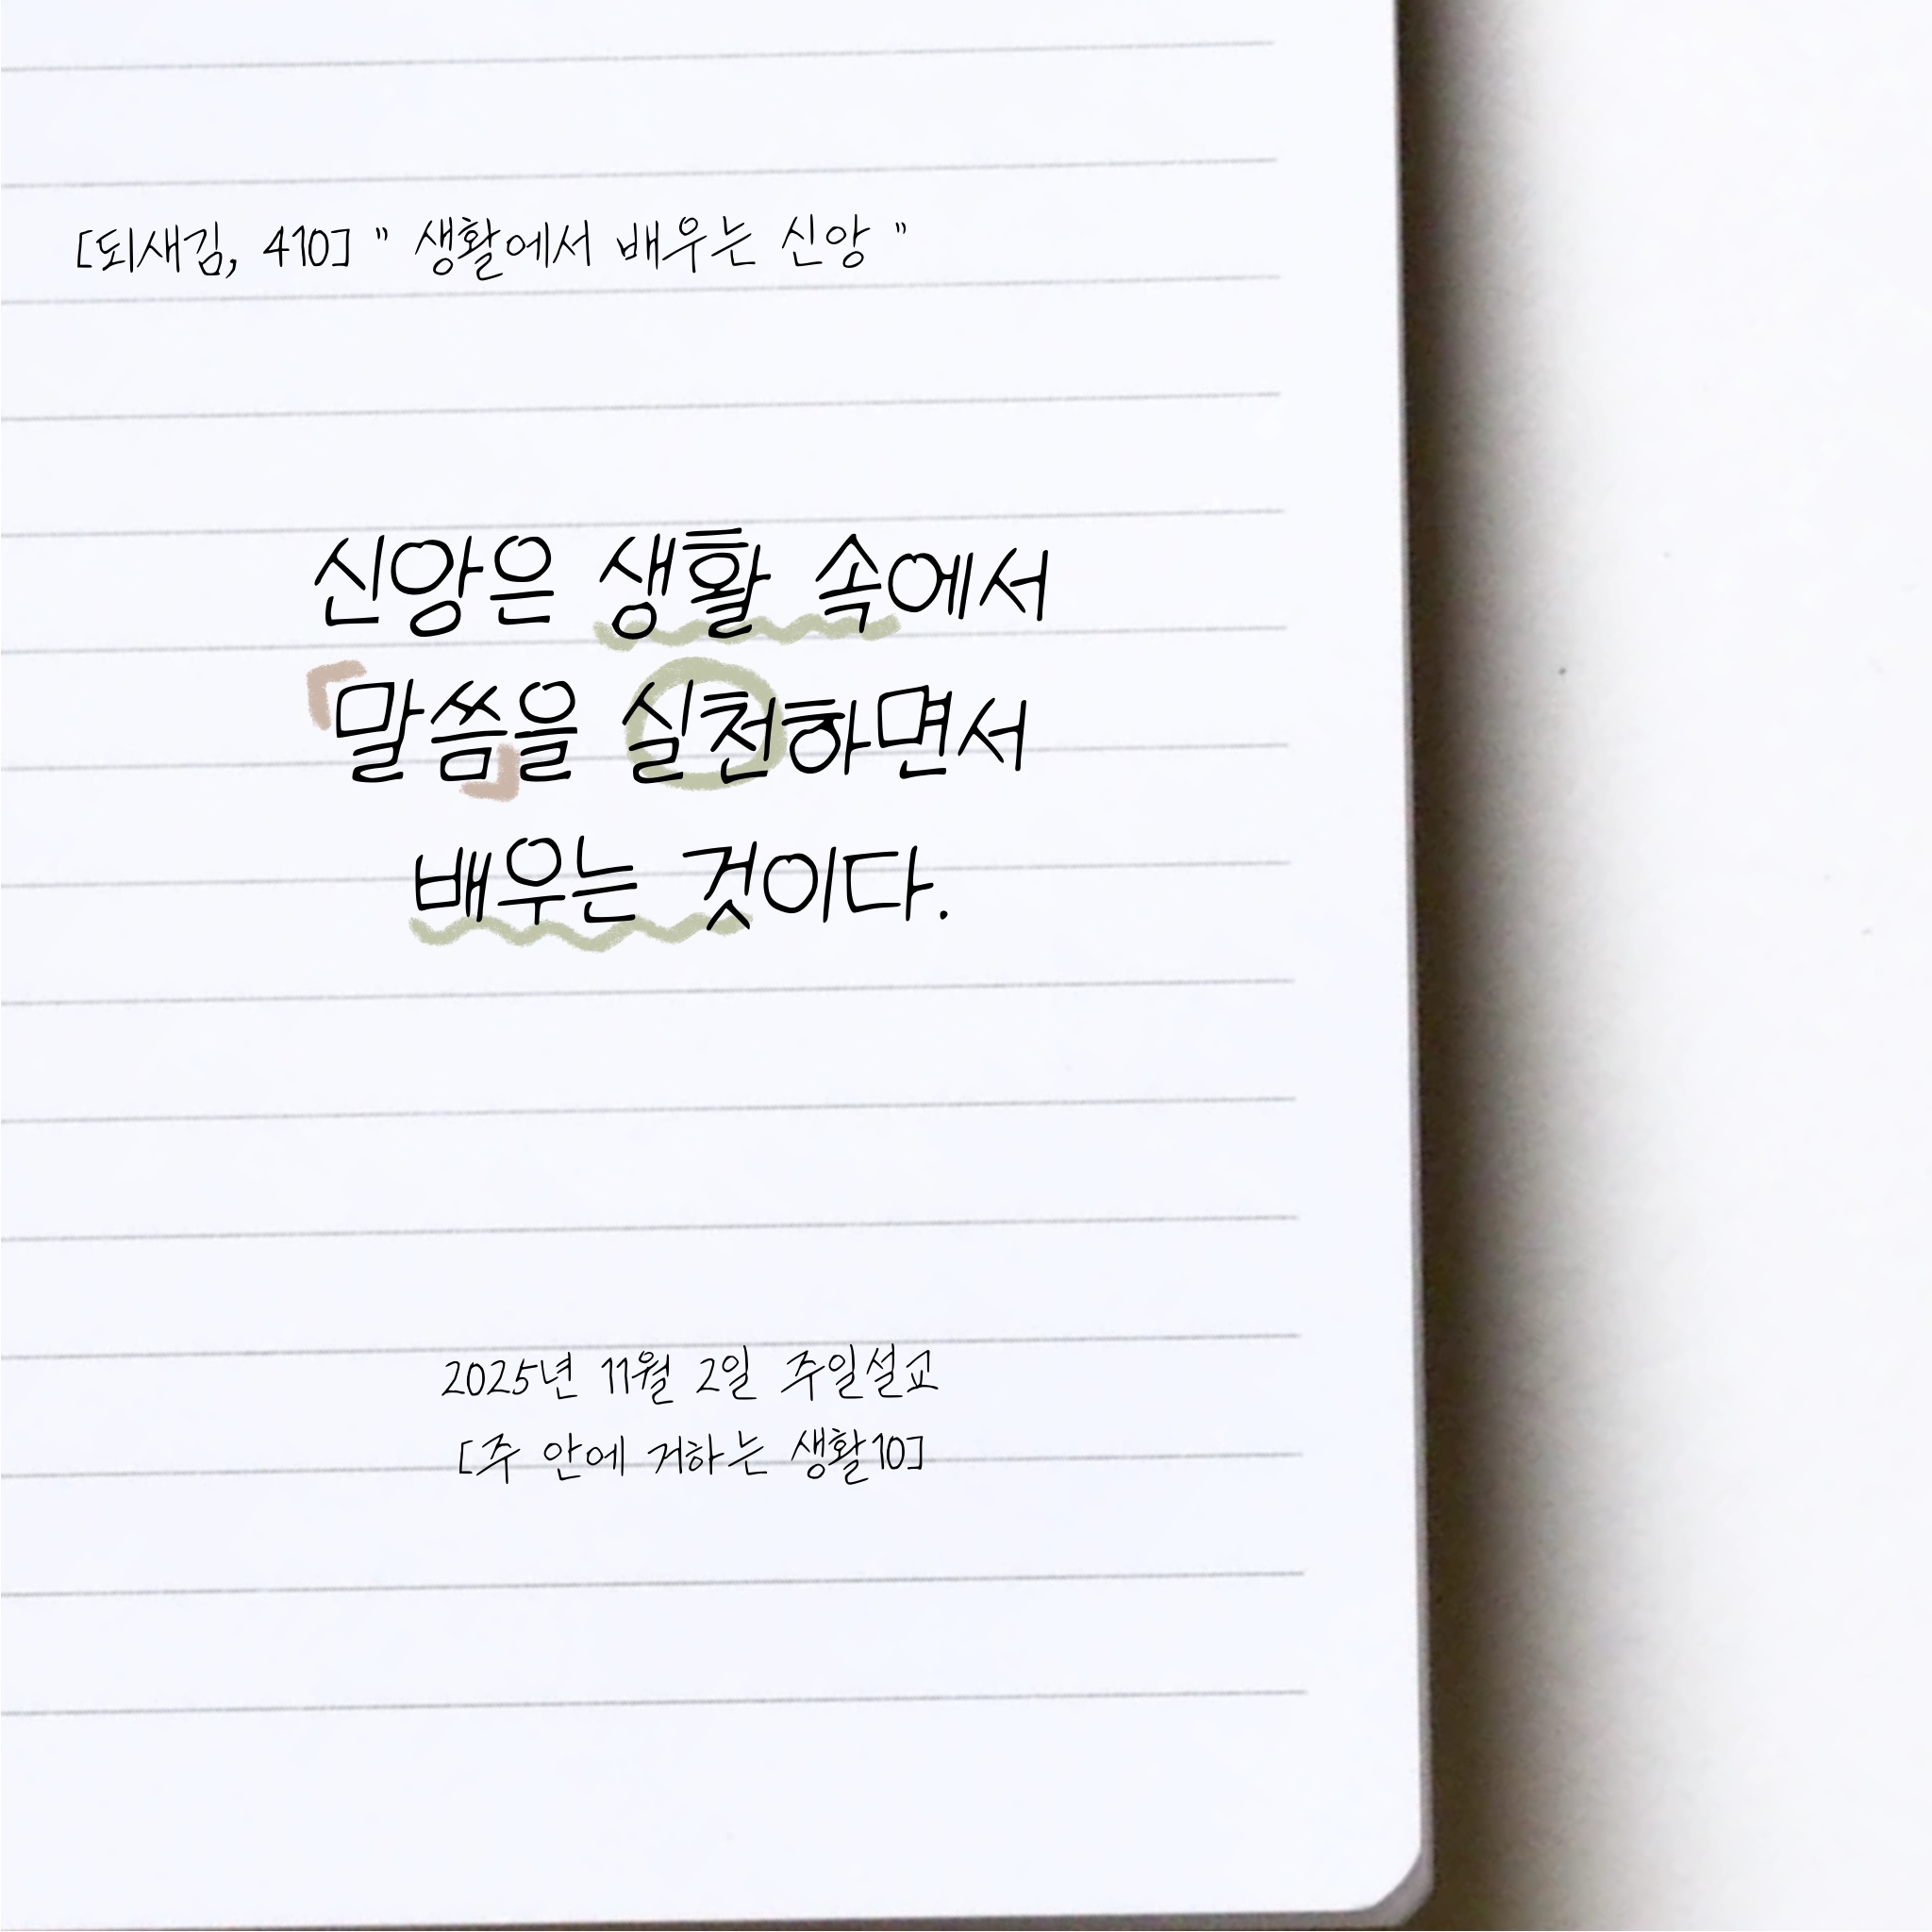 [되새김, 410] " 생활에서 배우는 신앙 "
신앙은 생활 속에서
「말씀」을 실천하면서
배우는 것이다.
2025년 11월 2일 주일설교
[주 안에 거하는 생활10]